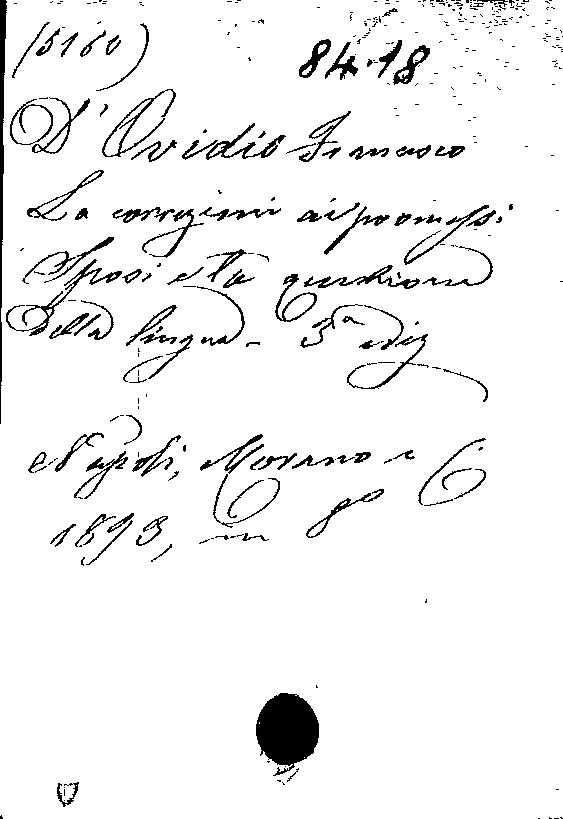 (5160)
84.18
D'Ovidio Francesco
La correzioni ai promessi
Sposi e la questione
della lingua - 3ª ediz
Napoli, Morano e C.
1893, in 8º